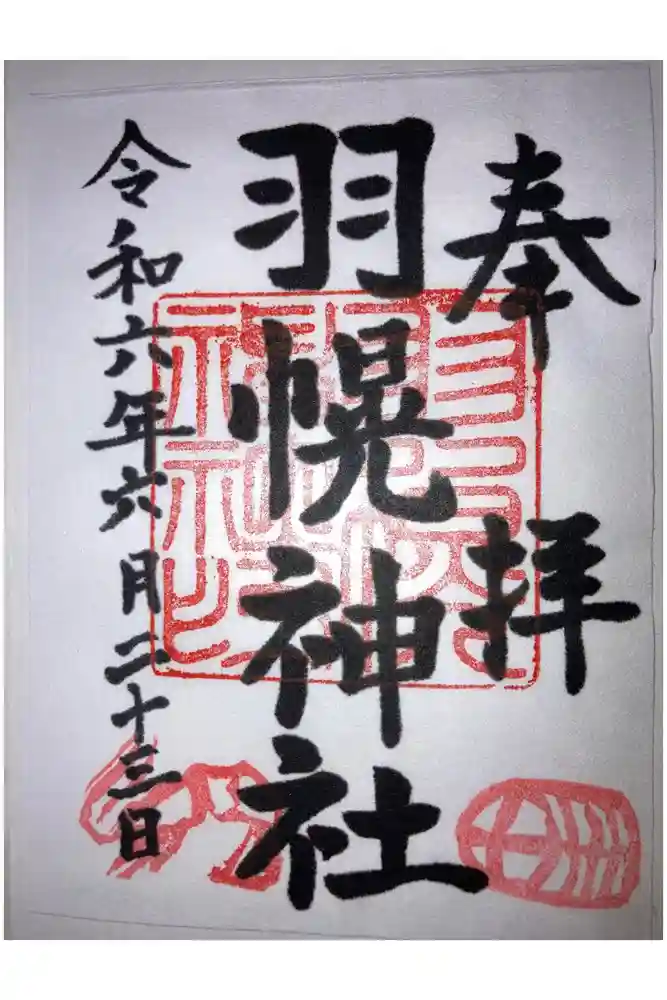 奉拝
羽幌神社
令和六年六月二十三日